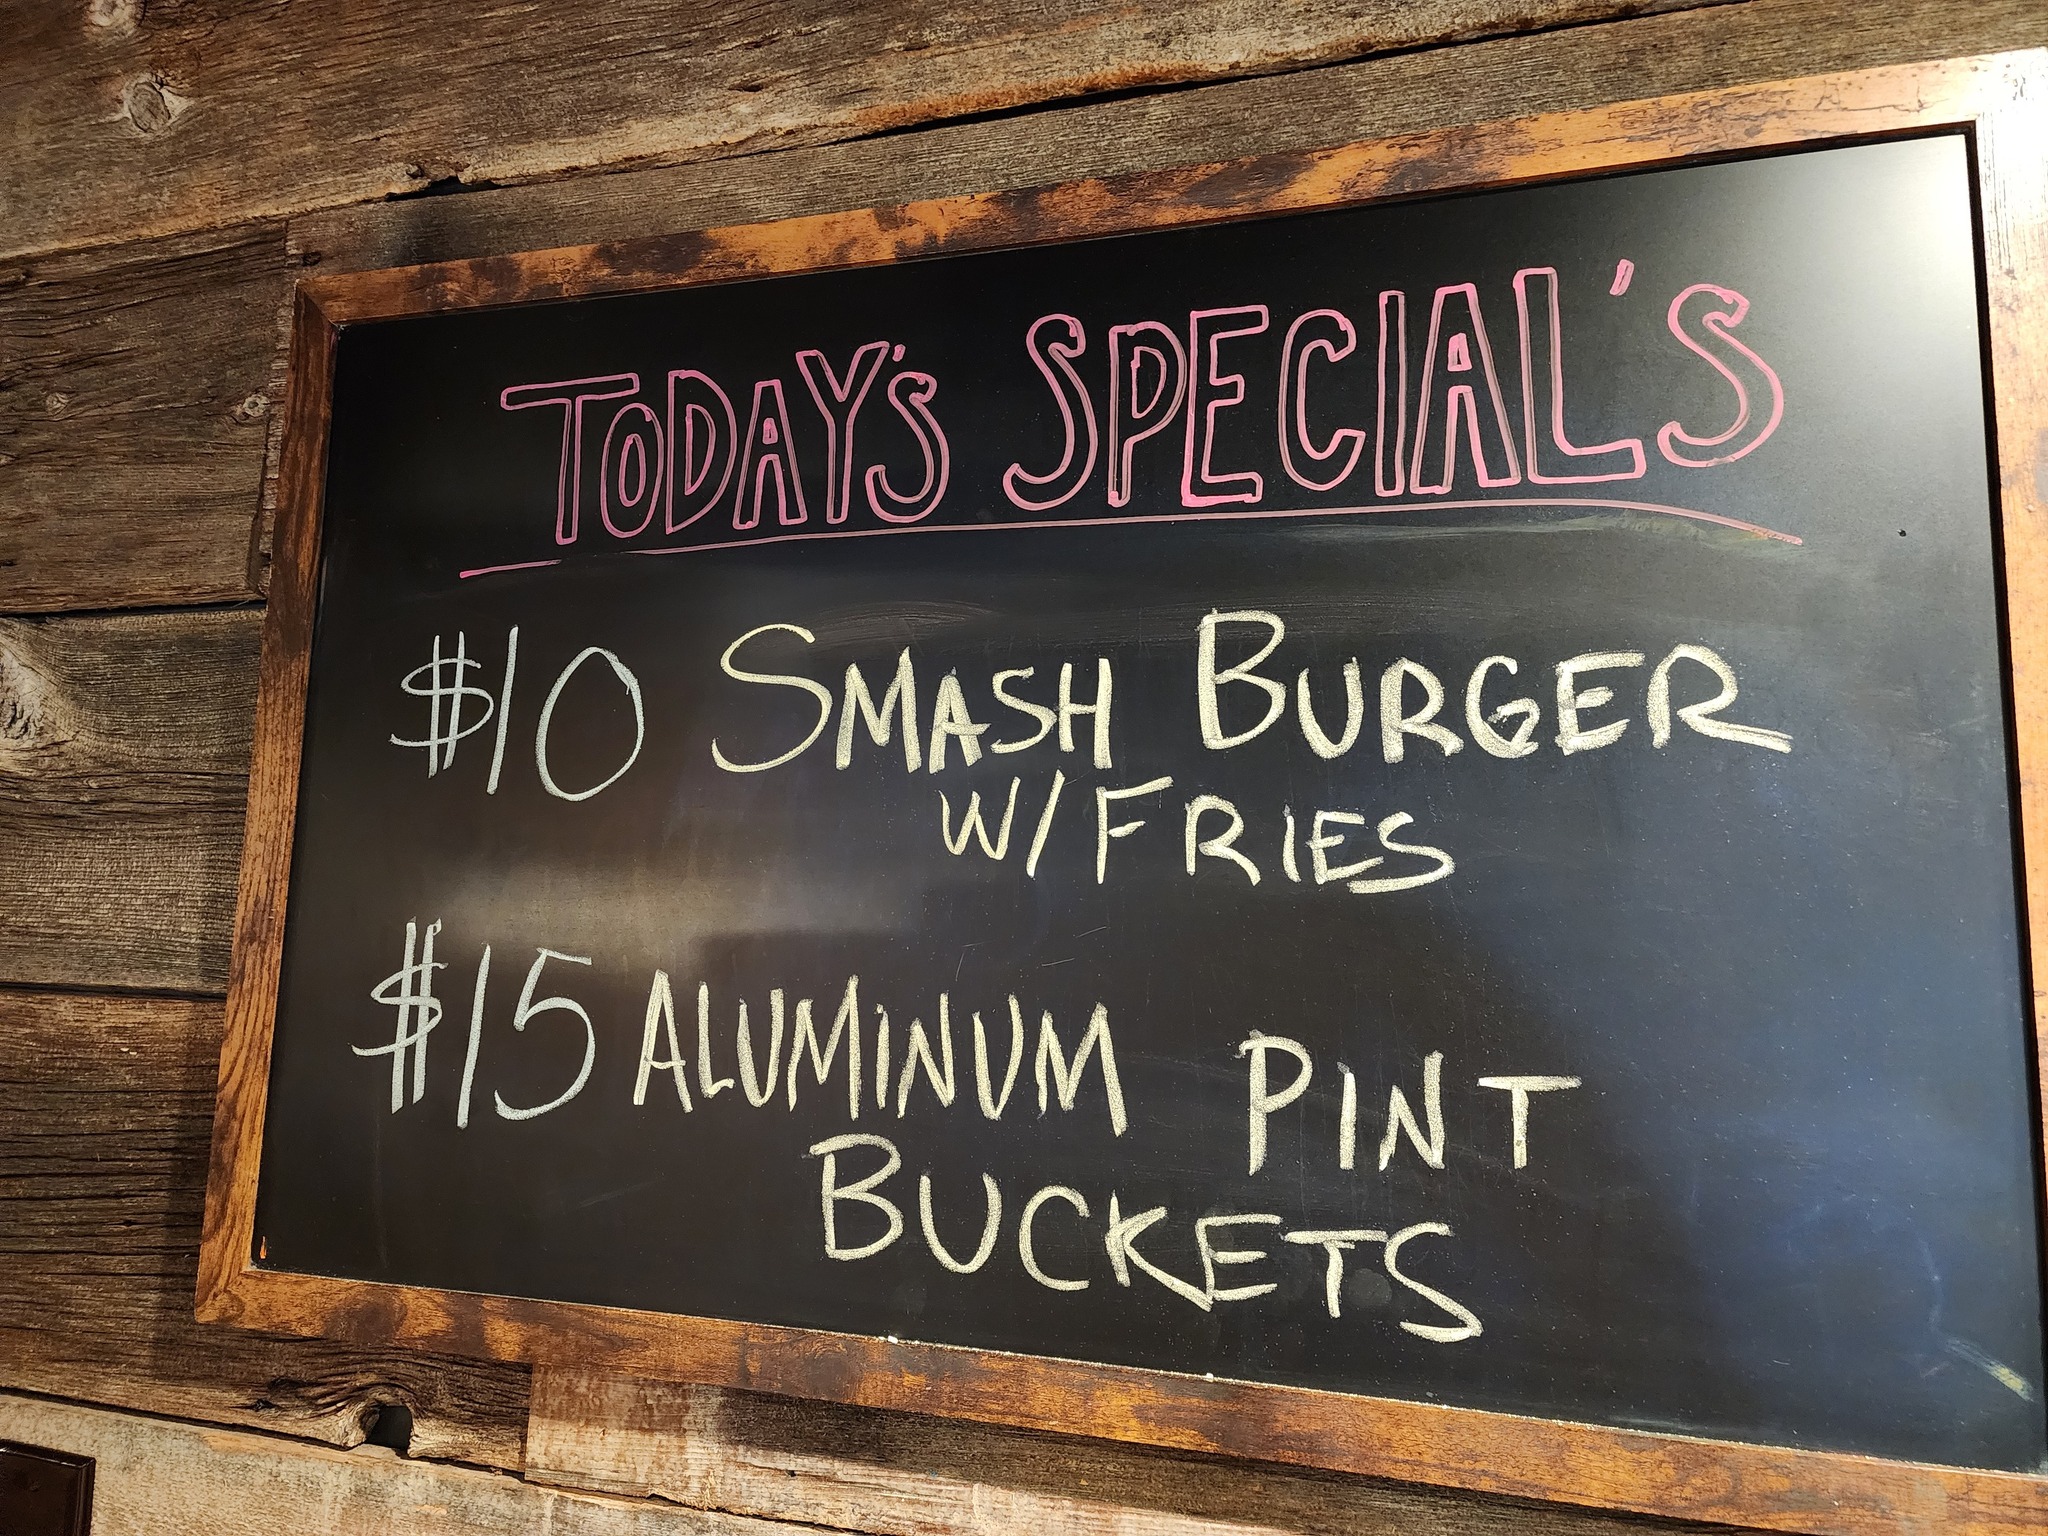 TODAY'S SPECIAL'S
$10 SMASH BURGER
W/FRIES
$15 ALUMINUM PINT
BUCKETS